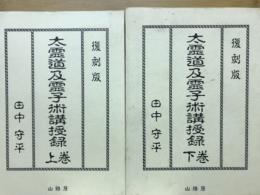 復刻版
太霊道及霊子術講授録
上巻
田中守平
山雅房
復刻版
太霊道及霊子術講授録
下巻
田中守平
山雅房